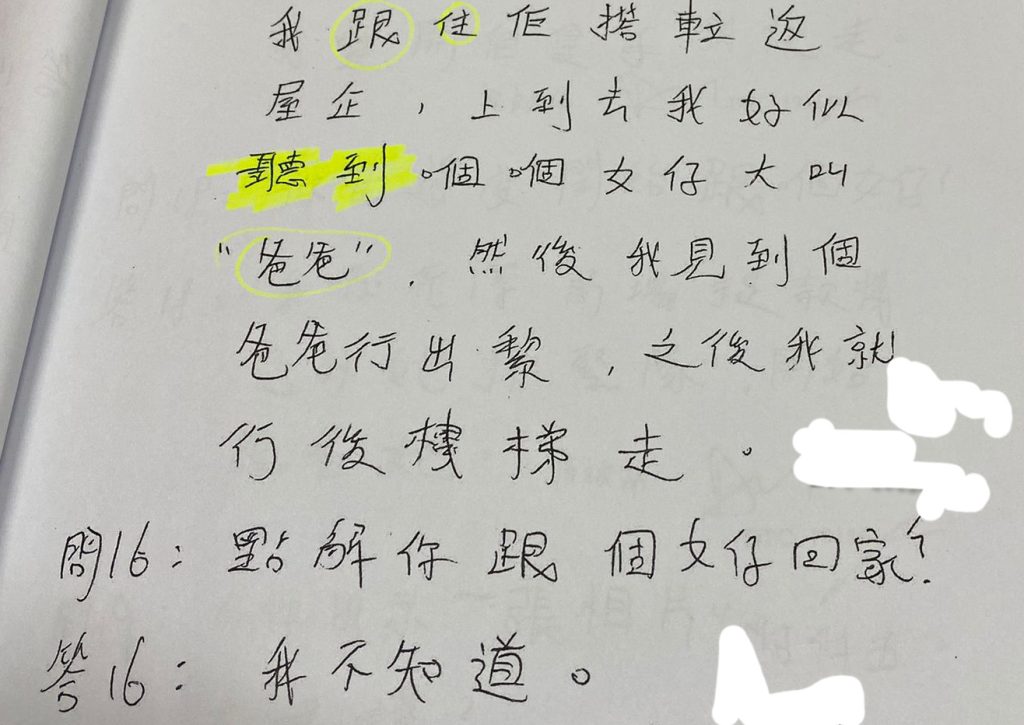 我跟住佢搭䡎返
屋企，上到去我好似
聽到嗰嗰女仔大叫
"爸爸"，然後我見到個
爸爸行出黎，之後我就
行後樓梯走。
問16：點解你跟個女仔回家？
答16：我不知道。